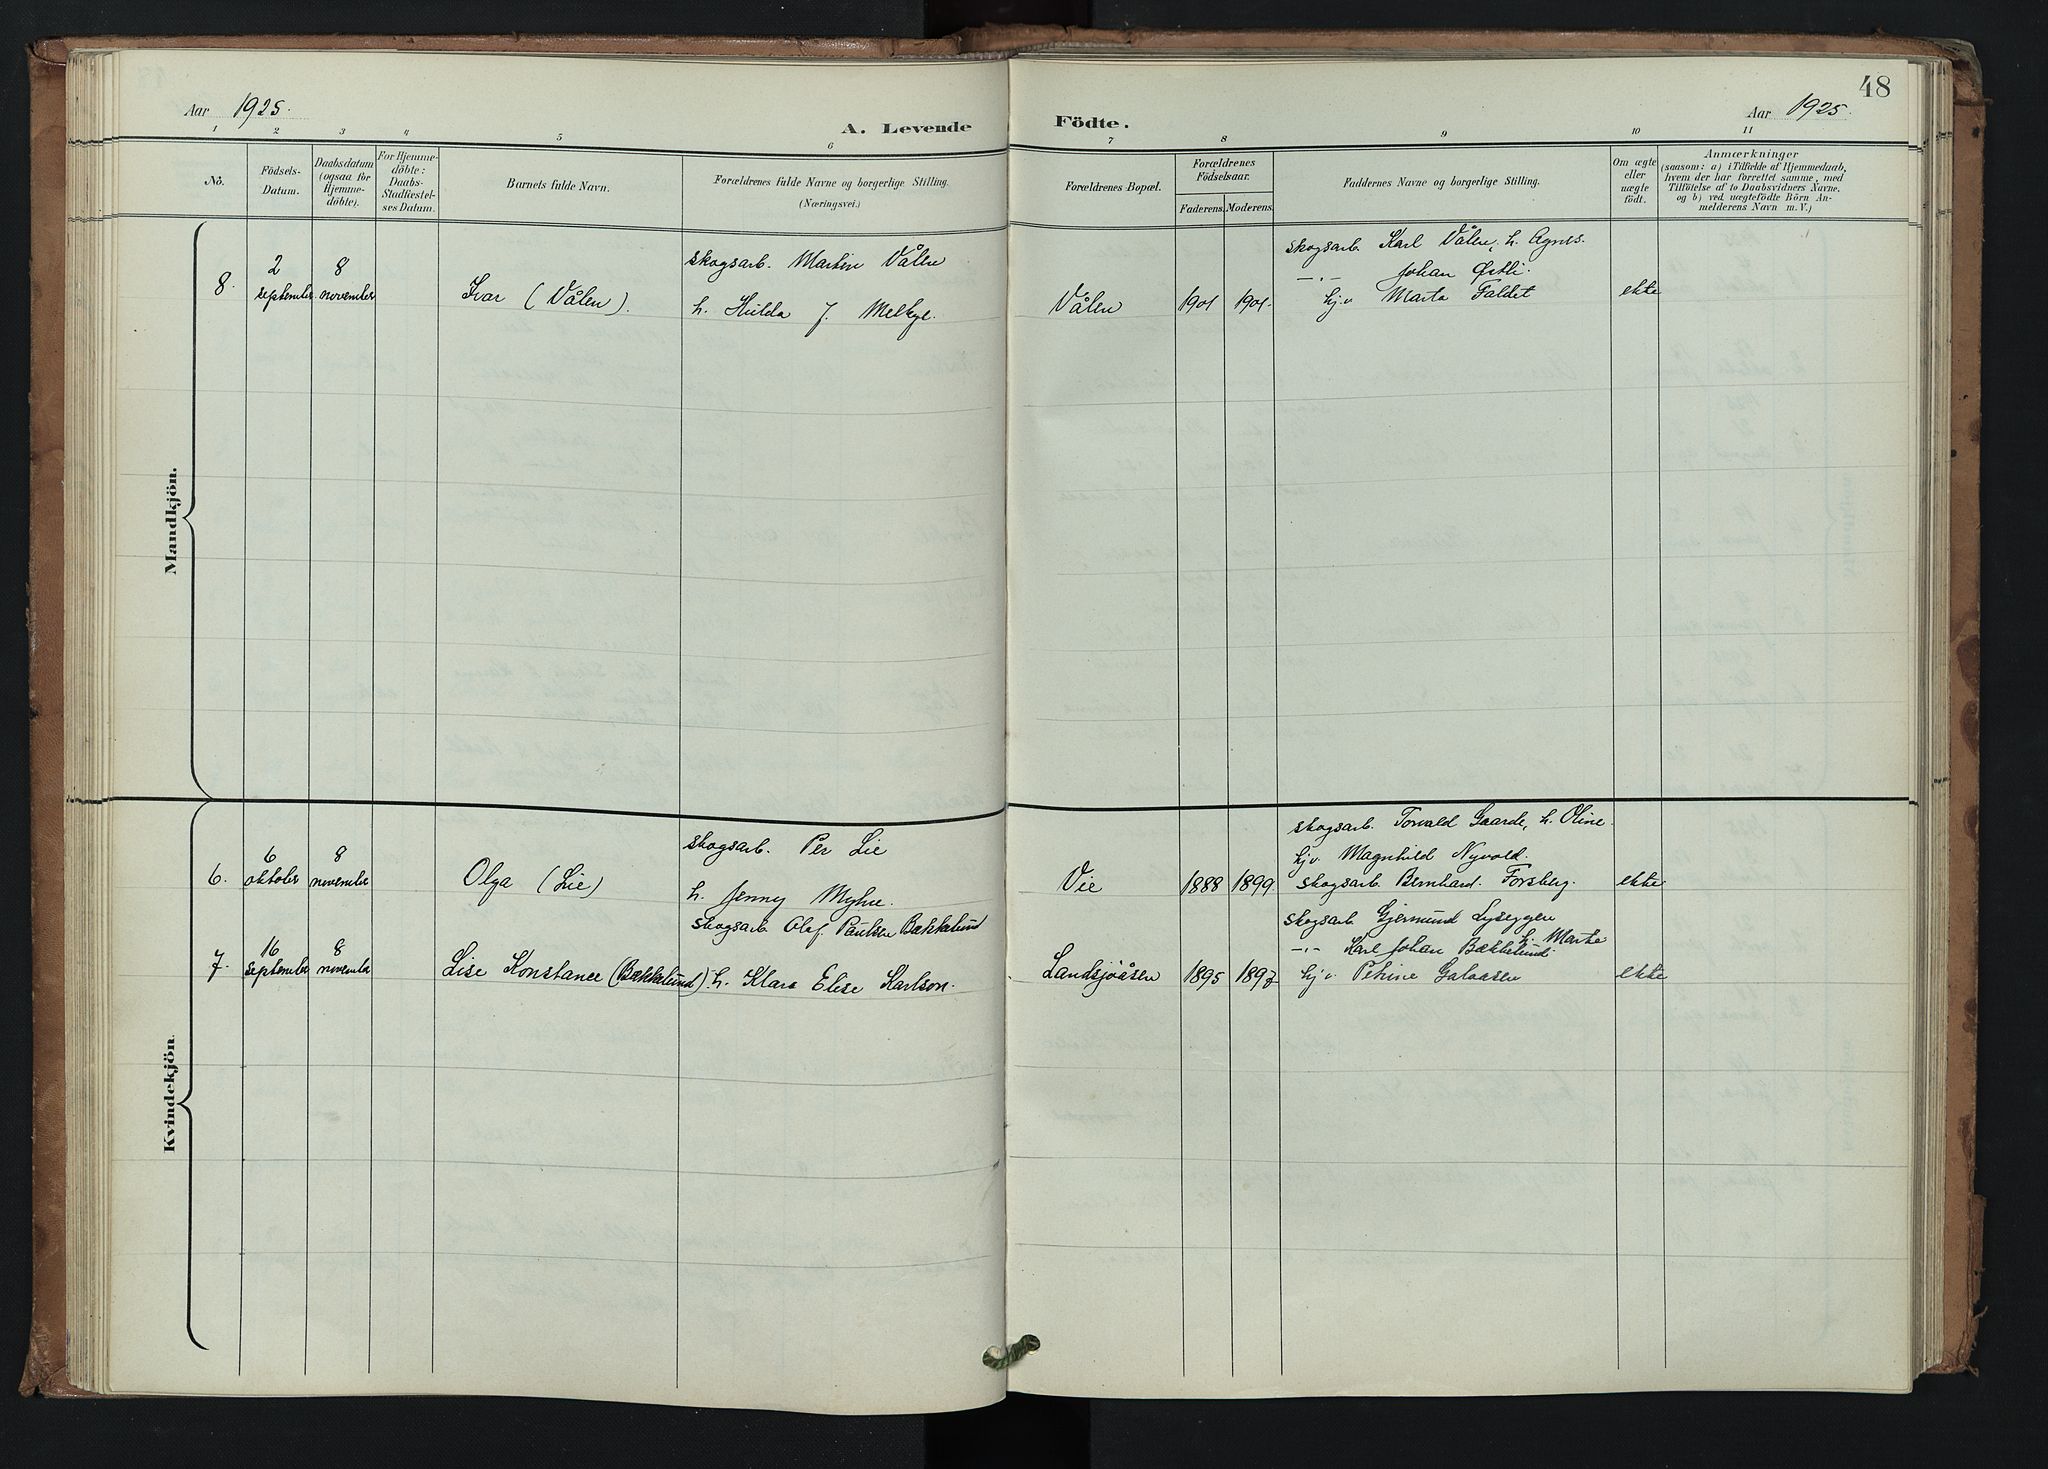 Aar 1925.
A. Levende Födte.
Aar 1925.
48
1 2 3 4 5 6 7 8 9 10 11
No.
Födsels-
Datum.
Daabsdatum
(ogsaa for
Hjemme-
döbte).
For Hjemme-
döbte:
Daabs-
Stadfæstel-
ses Datum.
Barnets fulde Navn.
Forældrenes fulde Navne og borgerlige Stilling.
(Næringsvei.)
Forældrenes Bopæl.
Forældrenes
Födselsaar.
Faderens. Moderens.
Faddernes Navne og borgerlige Stilling.
Om ægte
eller
uægte
födt.
Anmærkninger
(saasom: a) i Tilfælde af Hjemmedaab,
hvem der har forrettet samme, med
Tilföielse af to Daabsvidners Navne.
og b) ved uægtefödte Börn An-
melderens Navn m. V.)
Mandkjön.
8.
2
september
8
november
Ivar (Vålen).
skogsarb. Martin Vålen
h. Hulda J. Melkye.
Vålen
1901 1901.
skogsarb. Karl Vålen, h. Agnes.
—"— Johan Østli.
hj.v Marta Faldet
ekte
Kvindekjön.
6.
6
oktober
8
november
Olga (Lie)
skogsarb. Per Lie
h. Jenny Myhre.
Vie
1888 1899
skogsarb. Torvald Gaarde, h. Oline.
hj.v. Magnhild Nyvold.
skogsarb. Bernhard. Forsberg.
ekte
7.
16
september
8
november
Lise Konstance (Bækkelund).
skogsarb. Olaf Paulsen Bækkelund
h. Klara Elise Karlson.
Landsjøåsen
1895 1897
skogsarb Gjermund Lyseggen
h. Marte
—"— Karl Johan Bækkelund
hj v. Petrine Galaasen
ekte